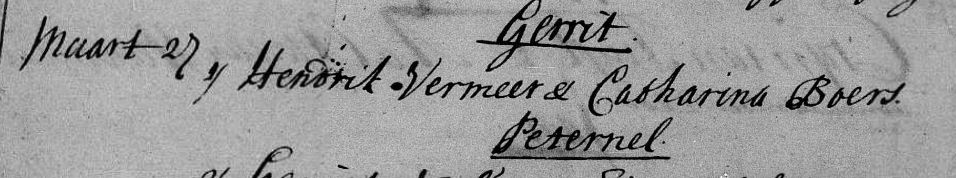 Gerrit.
Maart 27 v Hendrik Vermeer & Catharina Boers.
Peternel.